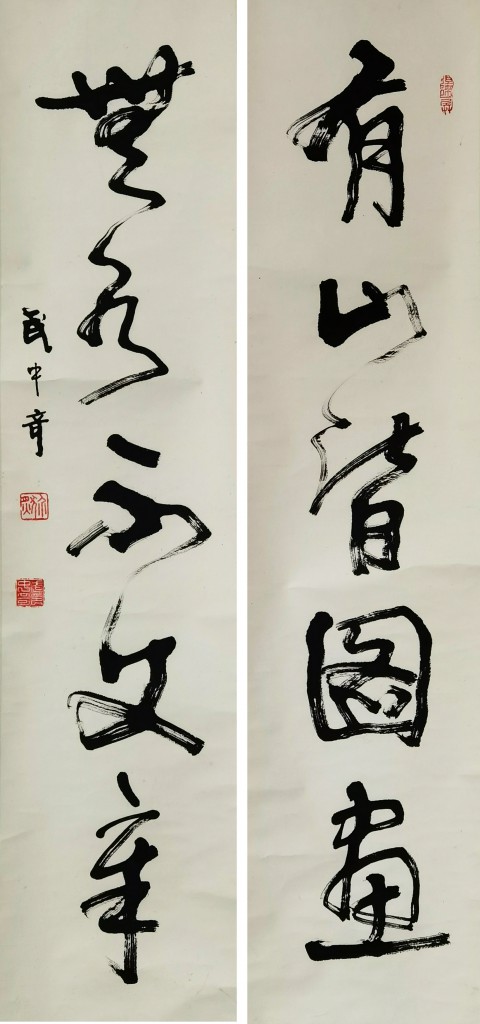 有山皆圖畫
無水不文章
武中奇